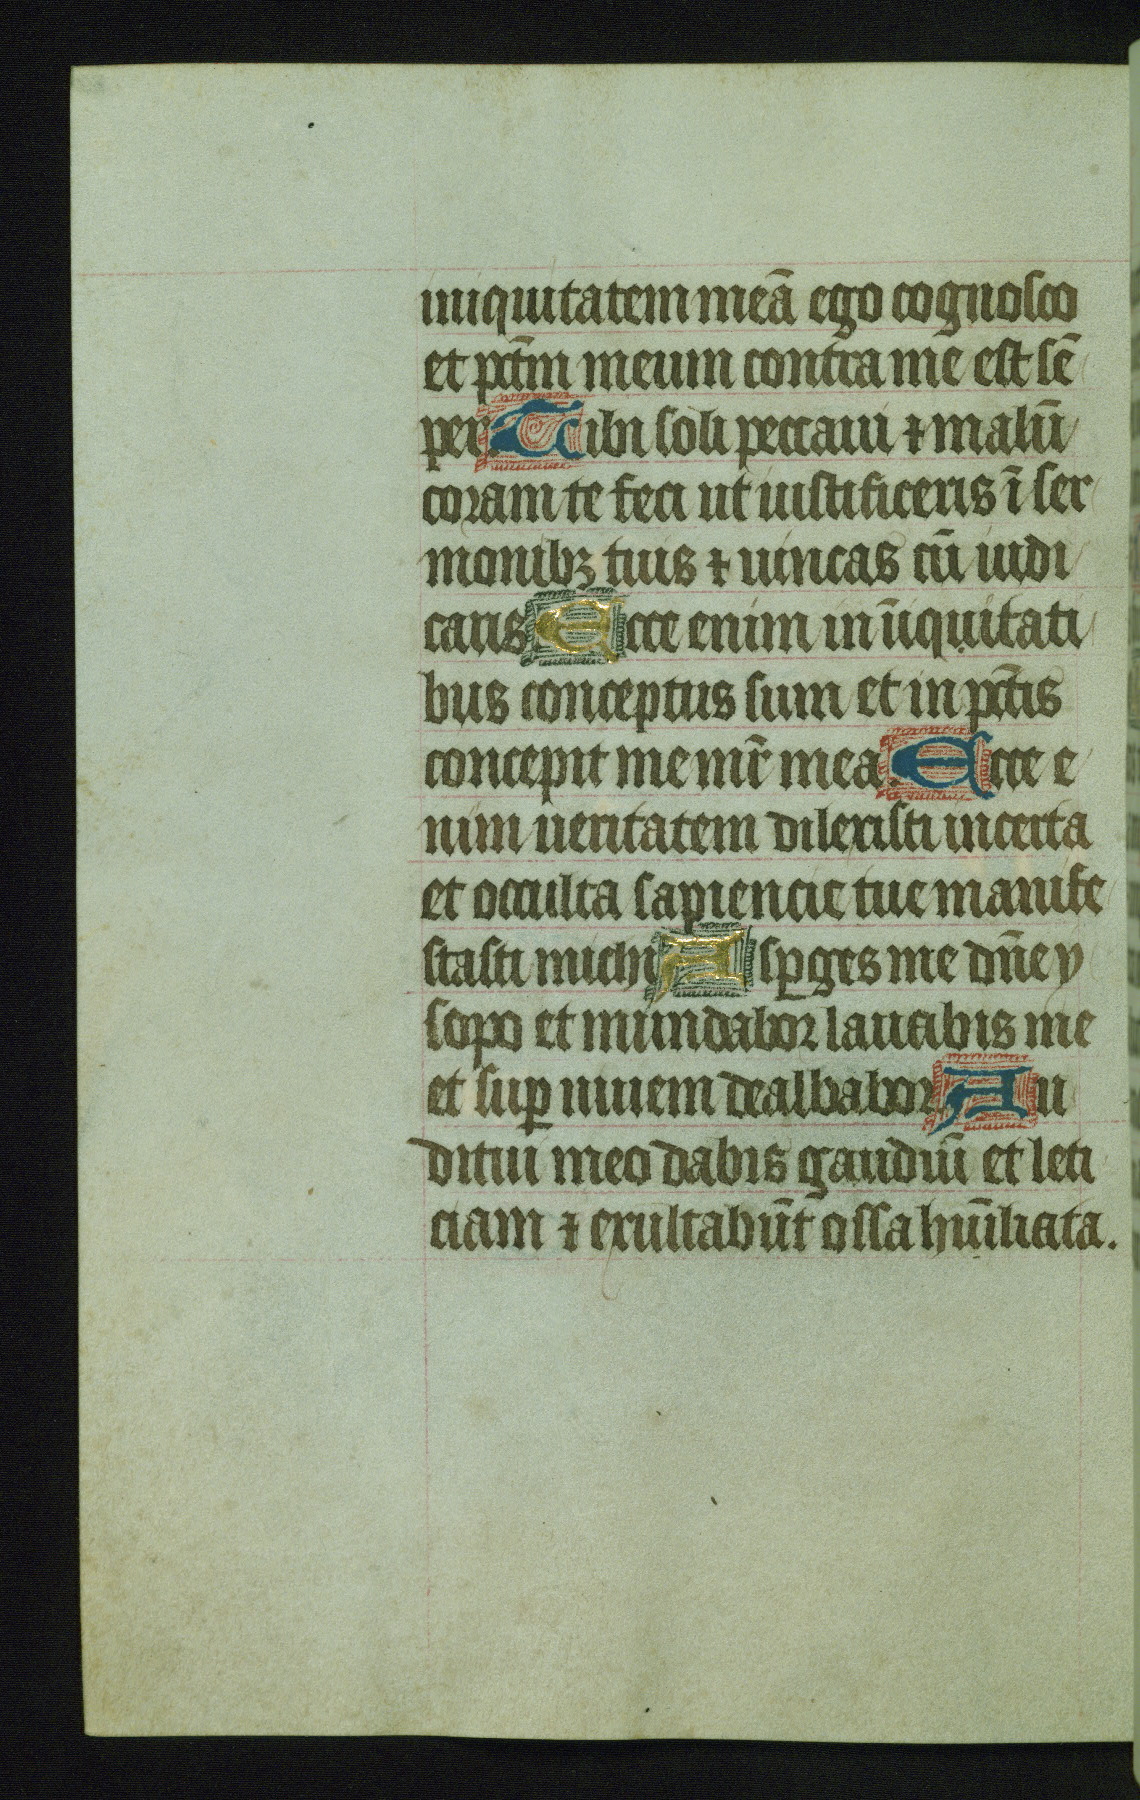 iniquitatem meā ego cognosco
et pctm̄ meum contra me est sē
per. Tibi soli peccaui ⁊ malū
coram te feci ut iustificeris ī ser
monibꝫ tuis ⁊ uincas cū iudi
caris Ecce enim in īiquitati
bus conceptus sum et in pctīs
concepit me mr̄ mea. Ecce e
nim ueritatem dilexisti incerta
et occulta sapiencie tue manife
stasti michi Asꝑges me dn̄e y
sopo et mundabor lauabis me
et suꝑ niuem dealbabor Au
ditui meo dabis gaudiū et leti
ciam ⁊ exultabūt ossa hūiliata.